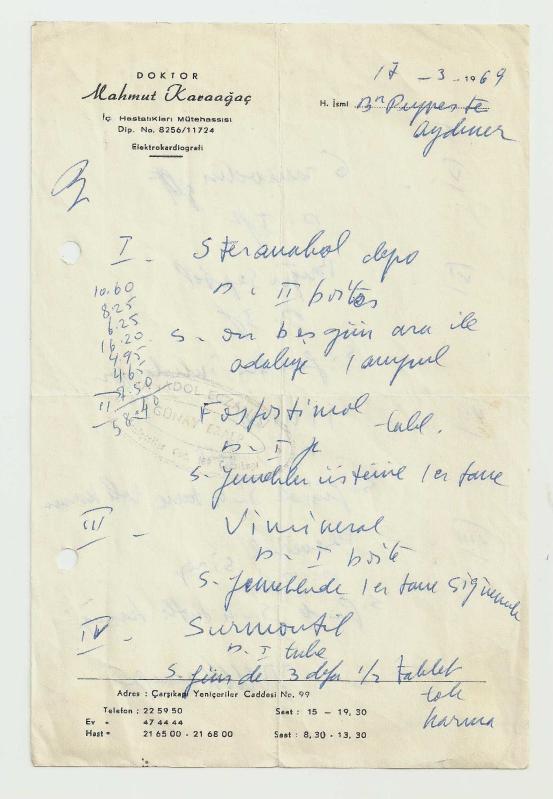 DOKTOR
Mahmut Karaağaç
İç Hastalıkları Mütehassisi
Dip. No. 8256/11724
Elektrokardiografi
17 - 3 - 1969
H. İsmi
Aydıner
I - Steranabol depo
D. II boîtes
S - on beş gün ara ile
adaleye 1 ampul
10.60
8.25
6.25
16.20
4.95
4.65
7.50
58.40
II - Fosfostimol tabl.
D - I
S - Yemekler üstüne 1 er tane
III - Vimineral
D - I boîte
S - Yemeklerde 1 er tane
IV - Surmontil
D - I tube
S - günde 3 defa 1/2 tablet
tok
karına
Adres : Çarşıkapı Yeniçeriler Caddesi No. 99
Telefon : 22 59 50 Saat : 15 - 19,30
Ev " 47 44 44
Hast " 21 65 00 - 21 68 00 Saat : 8,30 - 13,30